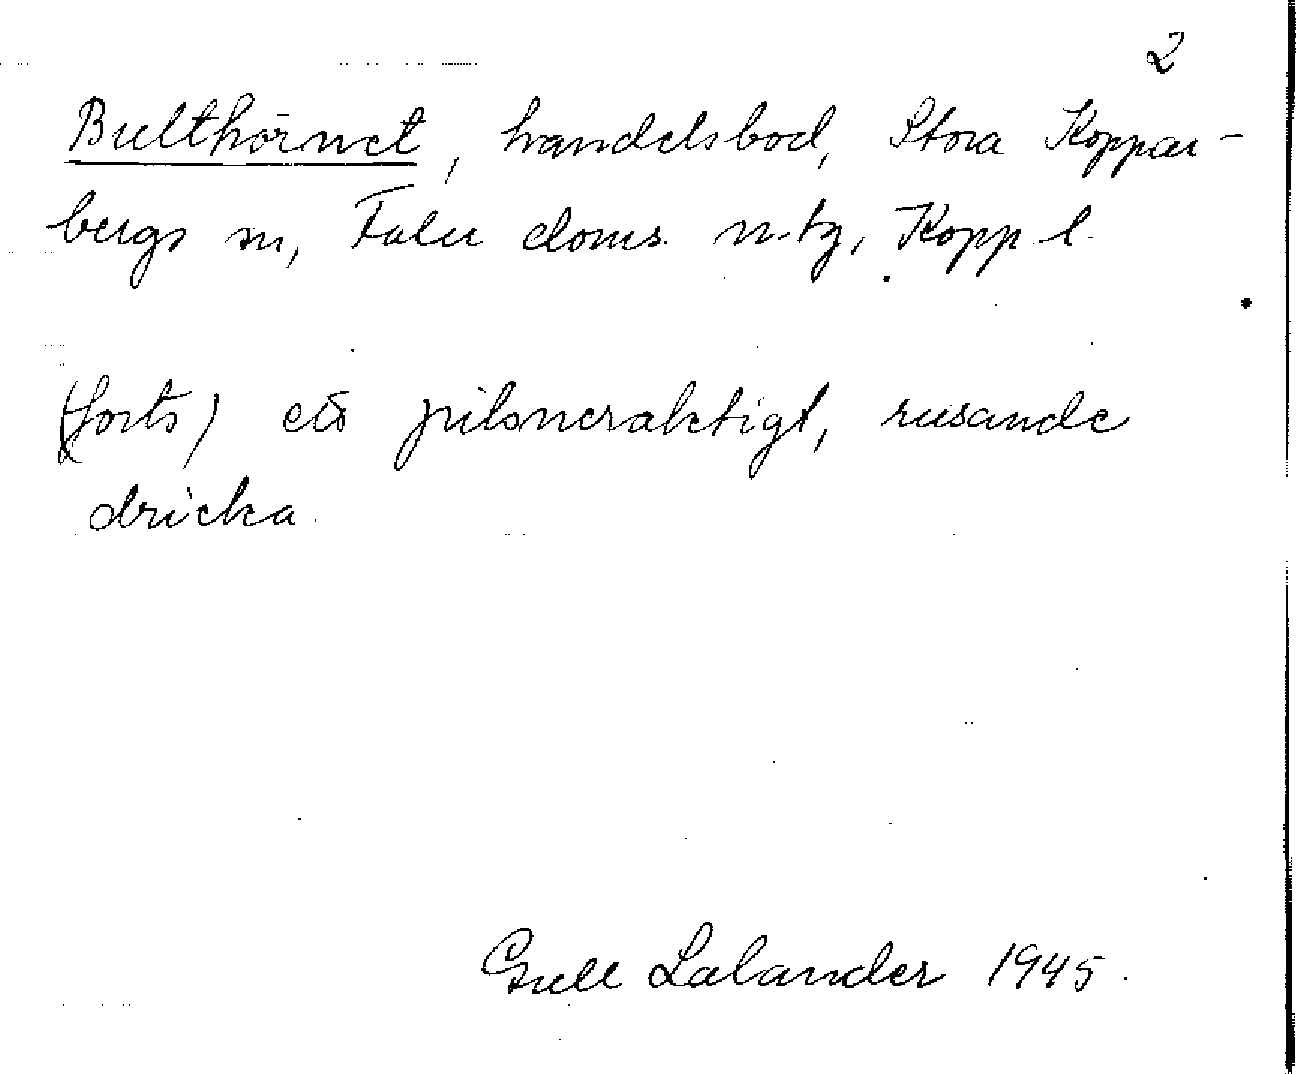 2
Bulthörnet, handelsbod, Stora Koppar-
bergs sn, Falu doms. n. tg, Kopp l.
(forts) ett pilsneraktigt, rusande
dricka.
Gull Lalander 1945.